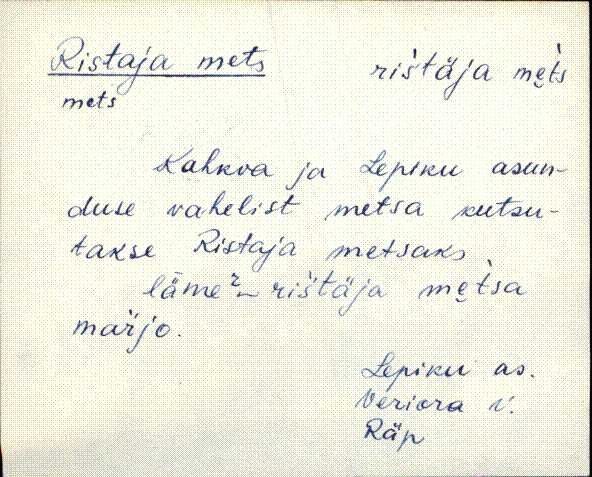 Ristaja mets riśtäja mẹ̀ts
mets
Kahkva ja Lepiku asun-
duse vahelist metsa kutsu-
takse Ristaja metsaks
läme² riśtäja mẹ̀tsa
marjo.
Lepiku as.
Veriora v.
Räp